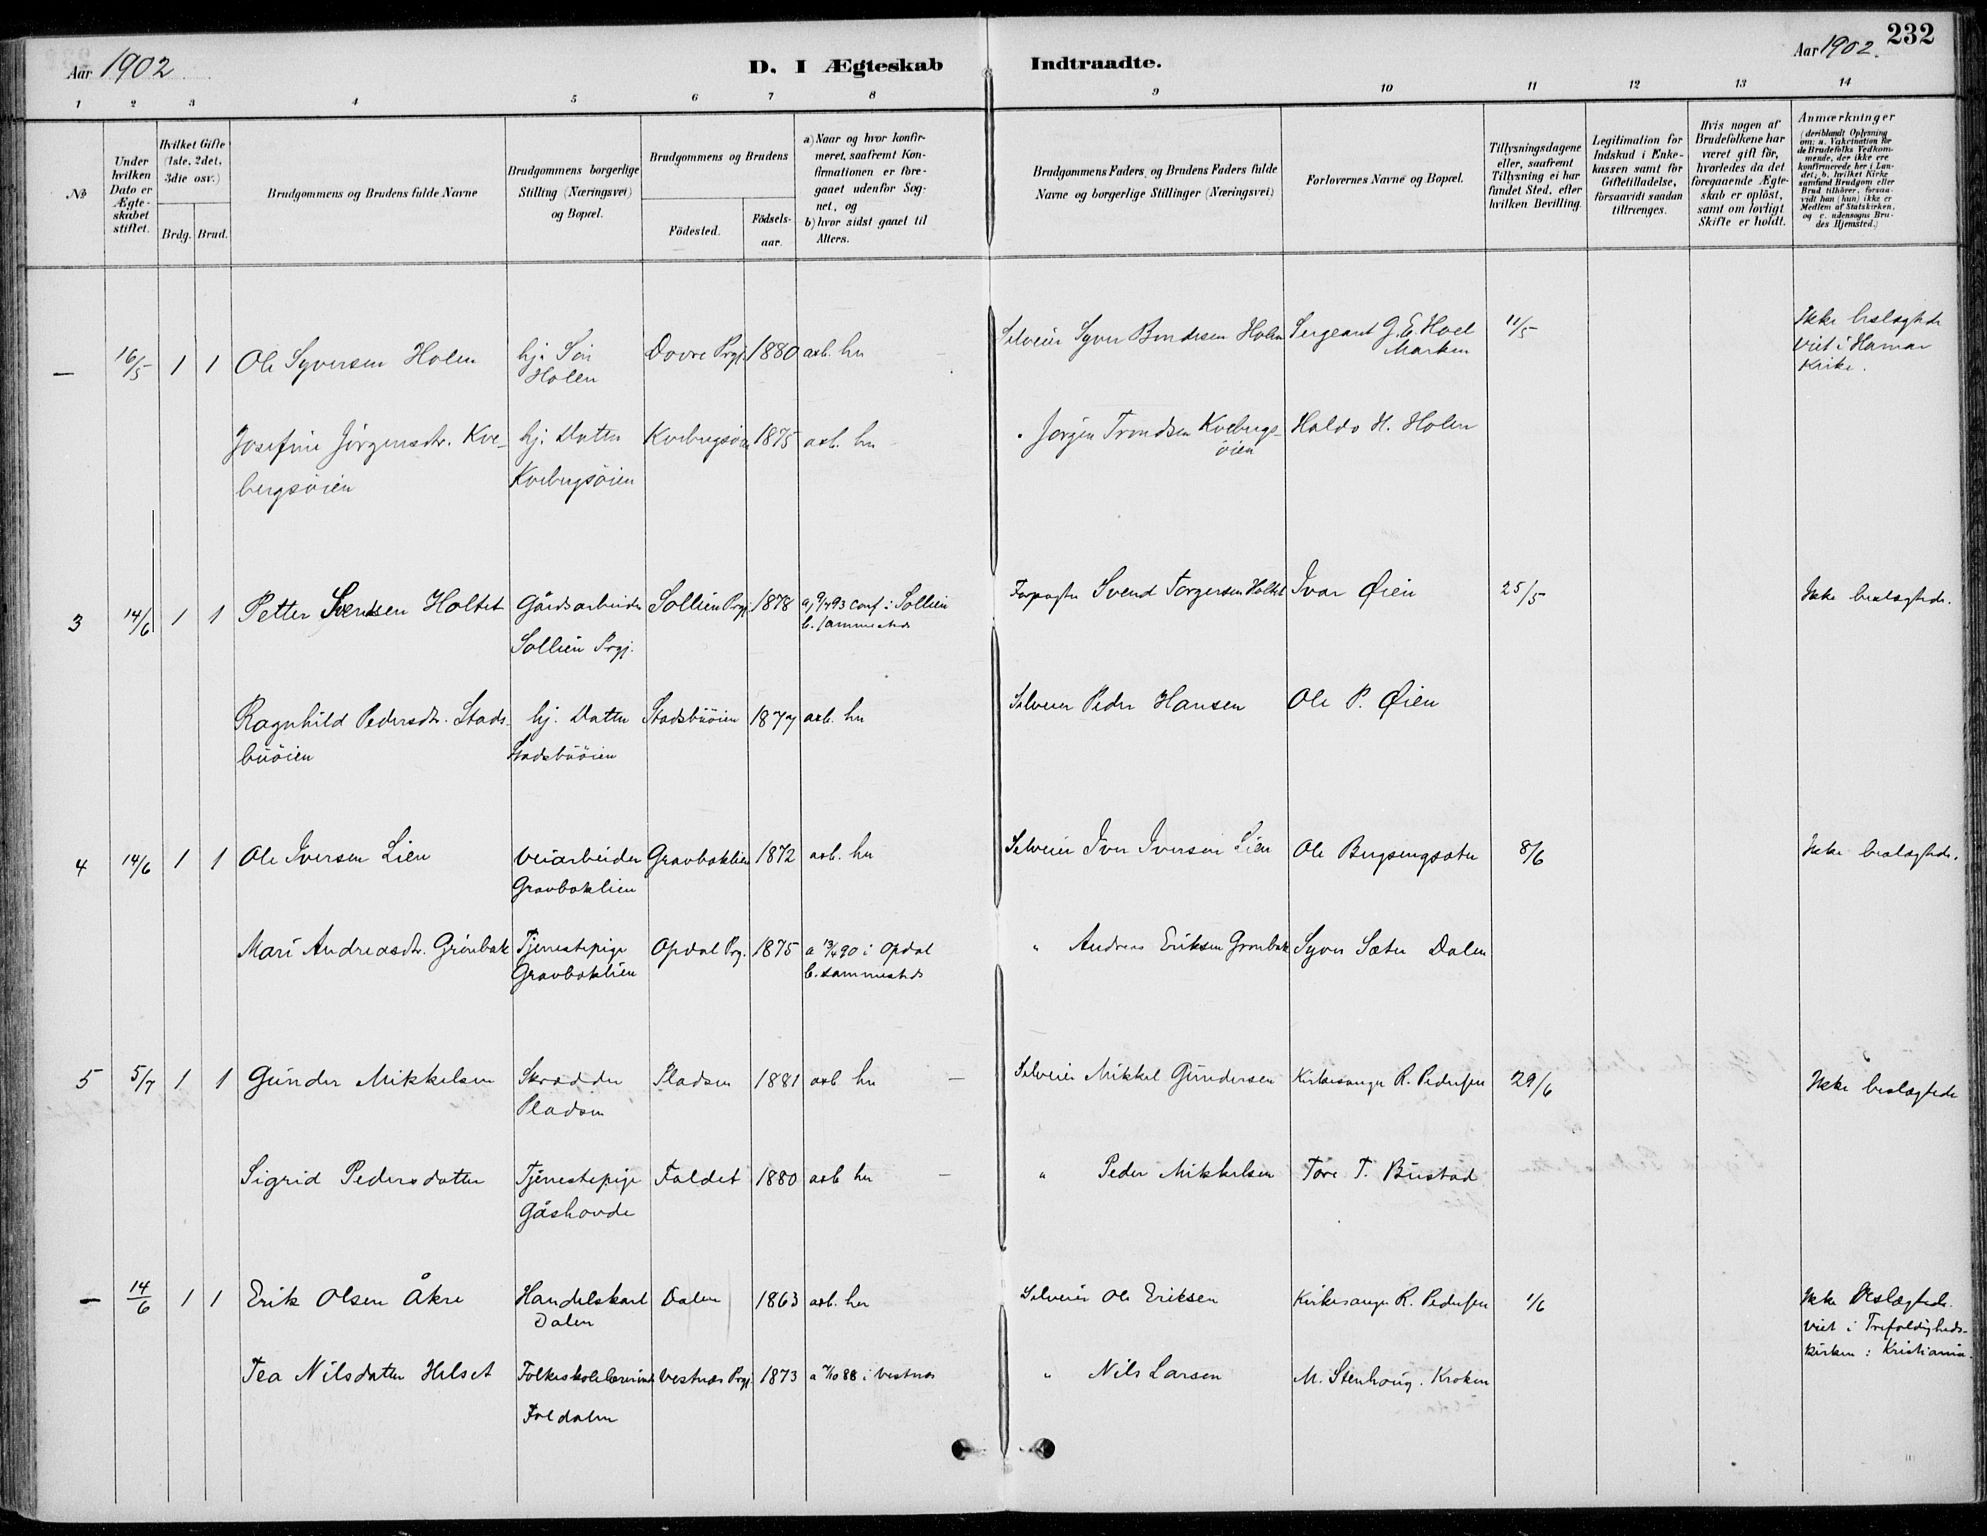 Aar 1902
D. I Ægteskab Indtraadte.
Aar 1902. 232
1 2 3 4 5 6 7 8 9 10 11 12 13 14
No
Under hvilken Dato er Ægteskabet stiftet.
Hvilket Gifte (1ste, 2det, 3die osv.)
Brdg. Brud.
Brudgommens og Brudens fulde Navne
Brudgommens borgerlige Stilling (Næringsvei) og Bopæl.
Brudgommens og Brudens
Födested. Födselsaar.
a) Naar og hvor konfirmeret, saafremt Konfirmationen er foregaaet udenfor Sognet, og
b) hvor sidst gaaet til Alters.
Brudgommens Faders og Brudens Faders fulde Navne og borgerlige Stillinger (Næringsvei)
Forlovernes Navne og Bopæl.
Tillysningsdagene eller, saafremt Tillysning ei har fundet Sted, efter hvilken Bevilling.
Legitimation for Indskud i Enkekassen samt for Giftetilladelse, forsaavidt saadan tiltrænges.
Hvis nogen af Brudefolkene har været gift för, hvorledes da det foregaaende Ægteskab er oplöst, samt om lovligt Skifte er holdt.
Anmærkninger (deriblandt Oplysning om: a. Vakcination for de Brudefolks Vedkommende, der ikke ere konfirmerede her i Landet; b. hvilket Kirkesamfund Brudgom eller Brud tilhörer, forsaavidt han (hun) ikke er Medlem af Statskirken, og c. udensogns Brudes Hjemsted.)
— 16/5 1 1 Ole Syversen Holen hj. Søn Dovre Prgj. 1880 a&b. her Selveier Syver Bendixsen Holen Sergeant G. E. Hoel 11/5 Ikke beslægtede
Holen Marken Viet i Hamar
Kirke.
Josefine Jørgensdtr. Kve- hj. Datter Kvebergsøien 1875 a&b. her " Jørgen Trondsen Kvebergs- Haldo H. Holen
bergsøien Kvebergsøien øien
3 14/6 1 1 Petter Svendsen Holtet Gårdsarbeider Sollien Prgj. 1878 a) 9/7 93 conf. i Sollien Forpagter Svend Torgersen Holtet Ivar Øien 25/5 Ikke beslægtede.
Sollien Prgj. b. sammesteds
Ragnhild Pedersdtr. Stads- hj. Datter Stadsbuöien 1877 a&b. her Selveier Peder Hansen Ole P. Øien
buöien Stadsbuöien
4 14/6 1 1 Ole Iversen Lien Veiarbeider Gravbaklien 1872 a&b. her Selveier Iver Iversen Lien Ole Bergsengsæter 8/6 Ikke beslægtede.
Gravbaklien
Mari Andreasdtr. Grönbak Tjenestepige Opdal Prg. 1875 a 13/4 90 i Opdal " Andreas Eriksen Grönbak Syver Sæter Dalen
Gravbaklien b. sammesteds
5 5/7 1 1 Gunder Mikkelsen Skrædder Pladsen 1881 a&b her — Selveier Mikkel Gundersen Kirkesanger R. Pedersen 29/6 Ikke beslægtede
Pladsen
Sigrid Pedersdatter Tjenestepige Foldet 1880 a&b her — " Peder Mikkelsen Tore T. Bustad
Gåshovde
— 14/6 1 1 Erik Olsen Åkre Handelskarl Dalen 1863 a&b. her Selveier Ole Eriksen Kirkesanger R. Pedersen 1/6 Ikke Beslægtede.
Dalen Viet i Trefoldigheds-
kirken i Kristiania.
Tea Nilsdatter Helset Folkeskolelærerinde Vestnæs Prgj. 1873 a 7/10 88 i Vestnæs " Nils Larsen M. Stenhoug. Kroken
Foldalen